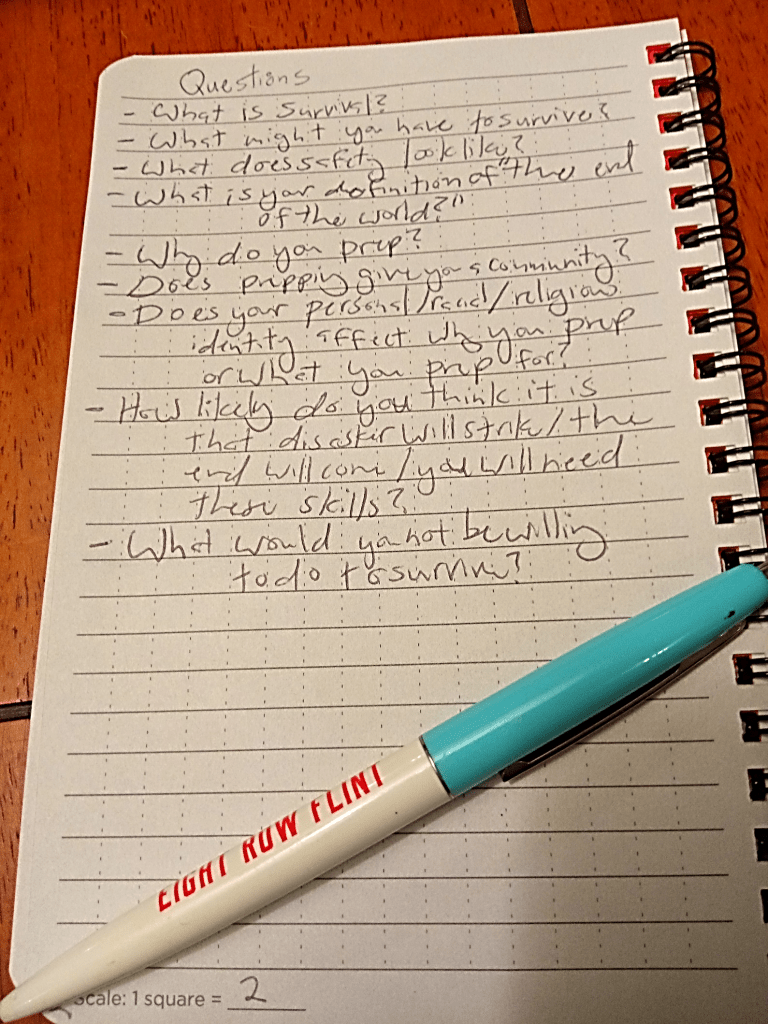 Questions
- What is survival?
- What might you have to survive?
- What does safety look like?
- What is your definition of "the end
of the world?"
- Why do you prep?
- Does prepping give you a community?
- Does your personal/racial/religious
identity affect why you prep
or what you prep for?
- How likely do you think it is
that disaster will strike/the
end will come/you will need
these skills?
- What would you not be willing
to do to survive?
EIGHT ROW FLINT
Scale: 1 square = 2